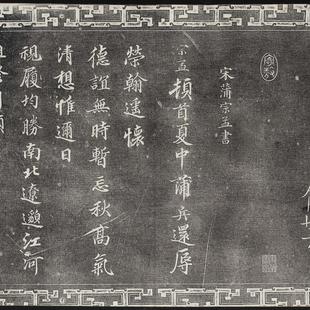 宋蒲宗孟書
宗孟頓首夏中蒲兵還辱
榮翰遙懷
德誼無時暫忘秋高氣
清想惟邇日
視履均勝南北遼邈江河